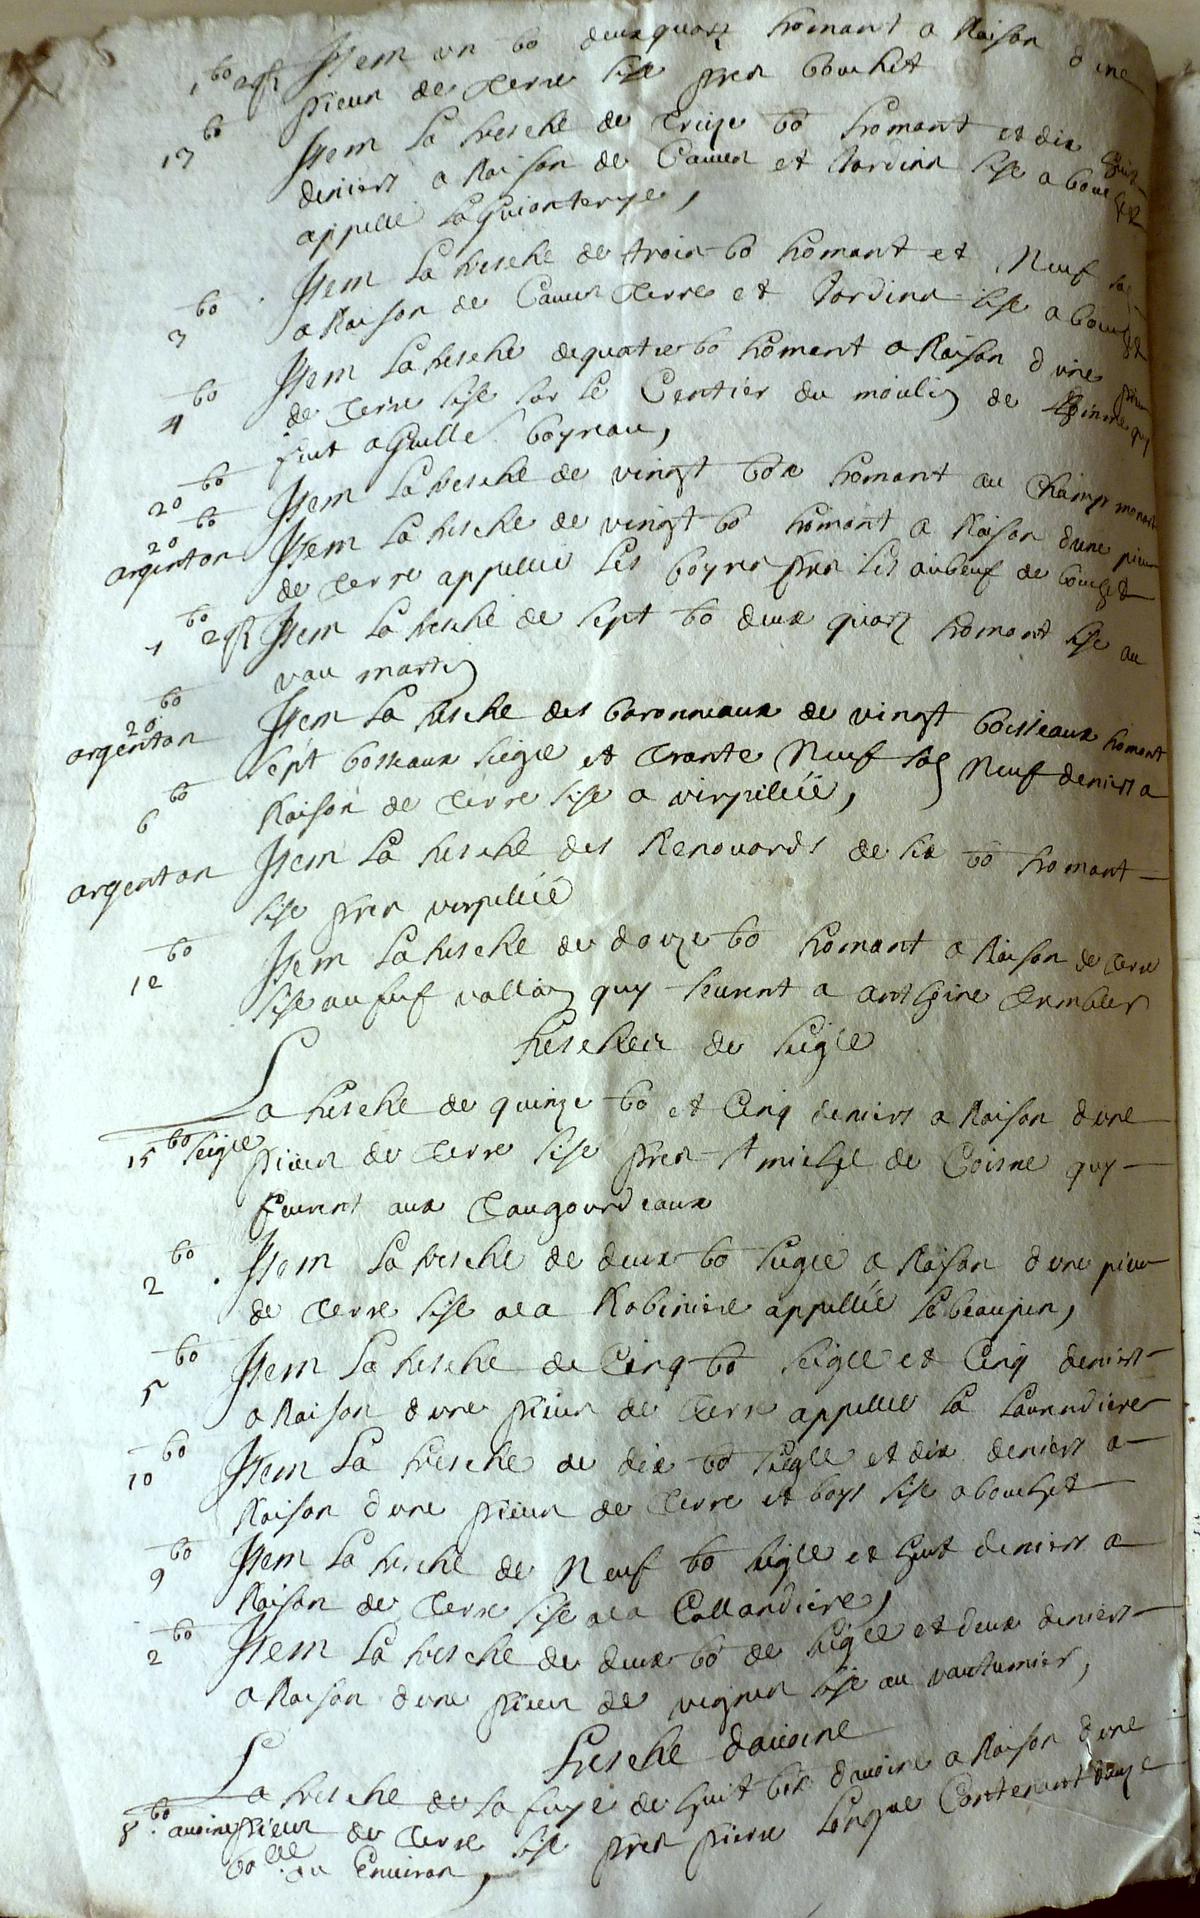 1 bo 2 qrs Item un bo deux quars fromant a Raison d'une
pieces de Terre sise pres bouchet
13 bo Item la fresche de treize bo fromant et dix huit
deniers a Raison de Caves et Jardins sise a bouchet
appellé la Guionterye,
3 bo Item la fresche de trois bo fromant et Neuf
a Raison de Caves Terres et Jardins sise a bouchet
4 bo Item la fresche de quatre bo fromant a Raison d'une piece
de Terre sise sur le Centier du moulin de quy
fut a Guille boyreau,
20 bo Item la fresche de vingt box fromant au Champ
20 bo Item la fresche de vingt bo fromant a Raison d'une piece
argenton de Terre appellée Les boyres pres les aubeuf de bouchet
7 bo 2 qrs Item la fresche de sept bo deux quars fromant sise au
vau martin
20 bo Item la fresche des baronneaux de vingt boisseaux fromant
argenton sept boisseaux seigle et trante Neuf sols Neuf deniers a
Raison de Terre sise a virpillée,
6 bo Item la fresche des Renouards de six bo fromant
argenton sise pres virpillée
12 bo Item la fresche de douze bo fromant a Raison de Terre
sise au fief vallain quy feurent a anthoine Trembler
fresches de seigle
La fresche de quinze bo et Cinq deniers a Raison d'une
15 bo seigle pieces de Terre sise pres St michel de Coisne quy
feurent aux Taugourdeaux
2 bo Item la fresche de deux bo seigle a Raison d'une piece
de Terre sise a la Robiniere appellée le beaupin,
5 bo Item la fresche de Cinq bo seigle et Cinq deniers
a Raison d'une pieces de Terre appellée la Lavandiere
10 bo Item la fresche de dix bo seigle et dix deniers a
Raison d'une pieces de Terre et boys sise a bouchet
9 bo Item la fresche de Neuf bo seigle et huit deniers a
Raison de Terre sise a la Callandiere,
2 bo Item la fresche de deux bo de seigle et deux deniers
a Raison d'une pieces de vignes sise au vautumier,
fresche davoine
La fresche de la fuye de huit box d'avoine a Raison d'une
8 bo avoine pieces de Terre sise pres pierre longue Contenant douze
bo lée ou Environ,